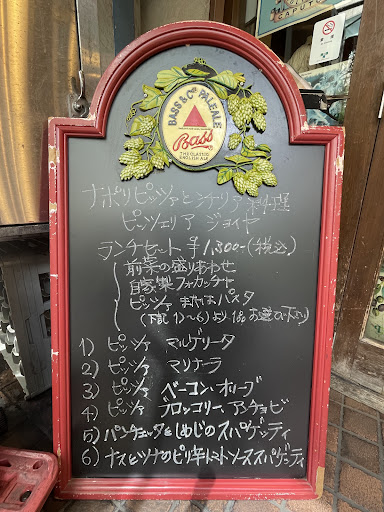 CAPUTO
BASS & Co PALE ALE
Bass
THE CLASSIC
ENGLISH ALE
ナポリピッツァとシチリア料理
ピッツェリア ジョイヤ
ランチセット ¥1,300-(税込)
前菜の盛りあわせ
自家製フォカッチャ
ピッツァ またはパスタ
(下記 1)~6)より1品お選び下さい)
1) ピッツァ マルゲリータ
2) ピッツァ マリナーラ
3) ピッツァ ベーコン・オリーブ
4) ピッツァ ブロッコリー、アンチョビ
5) パンチェッタとしめじのスパゲッティ
6) ナスとツナのピリ辛トマトソーススパゲッティ